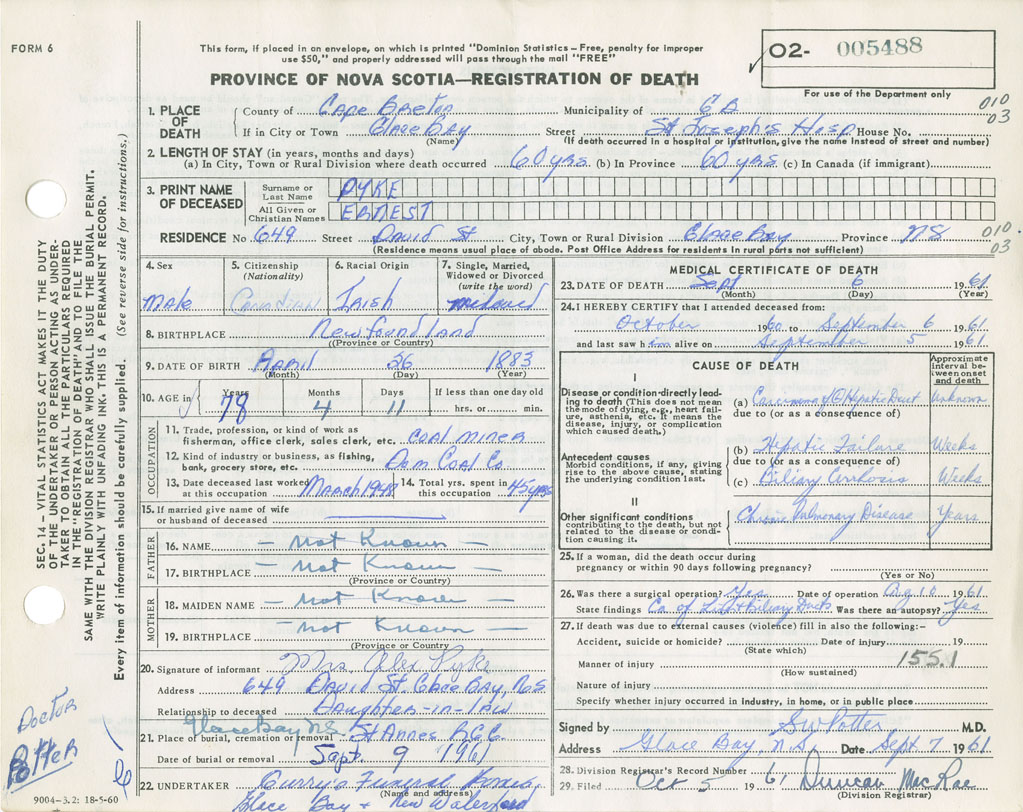 FORM 6
This form, if placed in an envelope, on which is printed "Dominion Statistics – Free, penalty for improper
use $50," and properly addressed will pass through the mail "FREE"
PROVINCE OF NOVA SCOTIA—REGISTRATION OF DEATH
02- 005488
For use of the Department only
1. PLACE OF DEATH County of Cape Breton Municipality of CB 010
If in City or Town Glace Bay Street St Joseph's Hosp House No. 03
(Name) (If death occurred in a hospital or institution, give the name instead of street and number)
2. LENGTH OF STAY (in years, months and days)
(a) In City, Town or Rural Division where death occurred 60 yrs. (b) In Province 60 yrs (c) In Canada (if immigrant)
3. PRINT NAME OF DECEASED Surname or Last Name PYKE
All Given or Christian Names ERNEST
RESIDENCE No. 649 Street David St City, Town or Rural Division Glace Bay Province NS 010 03
(Residence means usual place of abode. Post Office Address for residents in rural parts not sufficient)
4. Sex 5. Citizenship (Nationality) 6. Racial Origin 7. Single, Married, Widowed or Divorced (write the word)
Male Canadian Irish widowed
8. BIRTHPLACE Newfoundland
(Province or Country)
9. DATE OF BIRTH April 26 1883
(Month) (Day) (Year)
10. AGE in Years Months Days If less than one day old
78 4 11 hrs. or min.
OCCUPATION
11. Trade, profession, or kind of work as
fisherman, office clerk, sales clerk, etc. Coal Miner
12. Kind of industry or business, as fishing,
bank, grocery store, etc. Dom Coal Co
13. Date deceased last worked at this occupation March 1948 14. Total yrs. spent in this occupation 45 yrs
15. If married give name of wife
or husband of deceased
FATHER
16. NAME — Not Known —
17. BIRTHPLACE — Not Known —
(Province or Country)
MOTHER
18. MAIDEN NAME — Not Known —
19. BIRTHPLACE — Not Known —
(Province or Country)
20. Signature of informant Mrs Alex Pyke
Address 649 David St. Glace Bay, N.S
Relationship to deceased Daughter-in-law
Glace Bay N.S.
21. Place of burial, cremation or removal St Annes
Date of burial or removal Sept. 9 1961
22. UNDERTAKER Curry's Funeral Homes,
(Name and address)
Glace Bay & New Waterford
MEDICAL CERTIFICATE OF DEATH
23. DATE OF DEATH Sept 6 1961
(Month) (Day) (Year)
24. I HEREBY CERTIFY that I attended deceased from:
October 1960 to September 6 1961
and last saw him alive on September 5 1961
CAUSE OF DEATH
Approximate interval between onset and death
I
Disease or condition directly leading to death (This does not mean the mode of dying, e.g., heart failure, asthenia, etc. It means the disease, injury, or complication which caused death.)
(a) Hepatic Duct Unknown
due to (or as a consequence of)
(b) Hepatic Failure Weeks
due to (or as a consequence of)
(c) Biliary Cirrhosis Weeks
Antecedent causes
Morbid conditions, if any, giving rise to the above cause, stating the underlying condition last.
II
Other significant conditions
contributing to the death, but not related to the disease or condition causing it.
Chronic Pulmonary Disease Years
25. If a woman, did the death occur during
pregnancy or within 90 days following pregnancy?
(Yes or No)
26. Was there a surgical operation? Yes Date of operation Aug 10 1961
State findings Ca of Biliary Ducts Was there an autopsy? Yes
27. If death was due to external causes (violence) fill in also the following:—
Accident, suicide or homicide? Date of injury 19
(State which)
155.1
Manner of injury
(How sustained)
Nature of injury
Specify whether injury occurred in industry, in home, or in public place
Signed by SW Potter M.D.
Address Glace Bay, N.S. Date Sept 7 1961
28. Division Registrar's Record Number
29. Filed Oct 5 1961 Duncan MacRae
(Division Registrar)
SEC. 14 - VITAL STATISTICS ACT MAKES IT THE DUTY
OF THE UNDERTAKER OR PERSON ACTING AS UNDERTAKER TO OBTAIN ALL THE PARTICULARS REQUIRED
IN THE "REGISTRATION OF DEATH" AND TO FILE THE
SAME WITH THE DIVISION REGISTRAR WHO SHALL ISSUE THE BURIAL PERMIT.
WRITE PLAINLY WITH UNFADING INK. THIS IS A PERMANT RECORD.
Every item of information should be carefully supplied. (See reverse side for instructions.)
Doctor
Potter
9004-3.2: 18-5-60